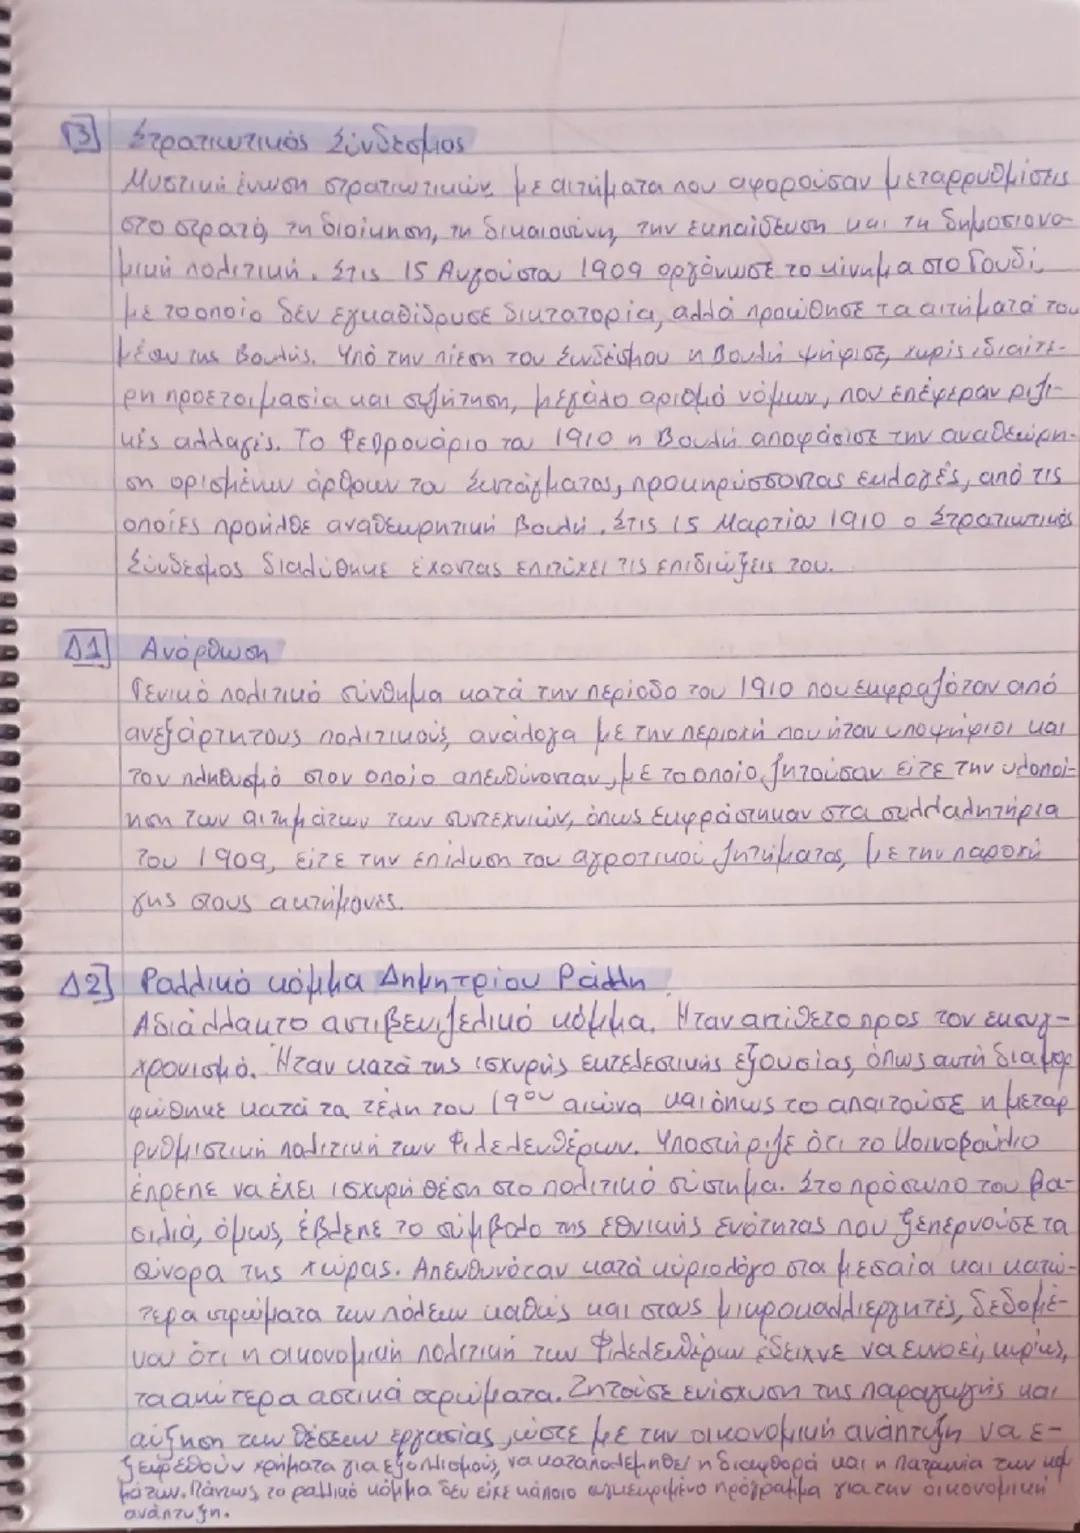 Γ3] Στρατιωτικός Σύνδεσμος
Μυστική ένωση στρατιωτικών, με αιτήματα που αφορούσαν μεταρρυθμίσεις
στο στρατό, τη διοίκηση, τη δικαιοσύνη, την εκπαίδευση και τη δημοσιονο-
μική πολιτική. Στις 15 Αυγούστου 1909 οργάνωσε το κίνημα στο Γουδί,
με το οποίο δεν εγκαθίδρυσε δικτατορία, αλλά προώθησε τα αιτήματά του
μέσω της Βουλής. Υπό την πίεση του Συνδέσμου η Βουλή ψήφισε, χωρίς ιδιαίτε-
ρη προετοιμασία και συζήτηση, μεγάλο αριθμό νόμων, που επέφεραν ριζι-
κές αλλαγές. Το Φεβρουάριο του 1910 η Βουλή αποφάσισε την αναθεώρη-
ση ορισμένων άρθρων του Συντάγματος, προκηρύσσοντας εκλογές, από τις
οποίες προήλθε αναθεωρητική Βουλή. Στις 15 Μαρτίου 1910 ο Στρατιωτικός
Σύνδεσμος διαλύθηκε έχοντας επιτύχει τις επιδιώξεις του.
Δ1] Ανόρθωση
Γενικό πολιτικό σύνθημα κατά την περίοδο του 1910 που εκφραζόταν από
ανεξάρτητους πολιτικούς, ανάλογα με την περιοχή που ήταν υποψήφιοι και
τον πληθυσμό στον οποίο απευθύνονταν, με το οποίο ζητούσαν είτε την υλοποί-
ηση των αιτημάτων των συντεχνιών, όπως εκφράστηκαν στα συλλαλητήρια
του 1909, είτε την επίλυση του αγροτικού ζητήματος, με την παροχή
γης στους ακτήμονες.
Δ2] Ραλλικό κόμμα Δημητρίου Ράλλη
Αδιάλλακτο αντιβενιζελικό κόμμα. Ήταν αντίθετο προς τον εκσυγ-
χρονισμό. Ήταν κατά της ισχυρής εκτελεστικής εξουσίας, όπως αυτή διαμορ
φώθηκε κατά τα τέλη του 19ου αιώνα και όπως το απαιτούσε η μεταρ
ρυθμιστική πολιτική των Φιλελευθέρων. Υποστήριζε ότι το Κοινοβούλιο
έπρεπε να έχει ισχυρή θέση στο πολιτικό σύστημα. Στο πρόσωπο του βα-
σιλιά, όμως, έβλεπε το σύμβολο της εθνικής ενότητας που ξεπερνούσε τα
σύνορα της χώρας. Απευθυνόταν κατά κύριο λόγο στα μεσαία και κατώ-
τερα στρώματα των πόλεων καθώς και στους μικροκαλλιεργητές, δεδομέ-
νου ότι η οικονομική πολιτική των Φιλελευθέρων έδειχνε να ευνοεί, κυρίως,
τα ανώτερα αστικά στρώματα. Ζητούσε ενίσχυση της παραγωγής και
αύξηση των θέσεων εργασίας, ώστε με την οικονομική ανάπτυξη να ε-
ξευρεθούν χρήματα για εξοπλισμούς, να καταπολεμηθεί η διαφθορά και η πατρωνία των κομ
μάτων. Πάντως, το ραλλικό κόμμα δεν είχε κάποιο συγκεκριμένο πρόγραμμα για την οικονομική
ανάπτυξη.